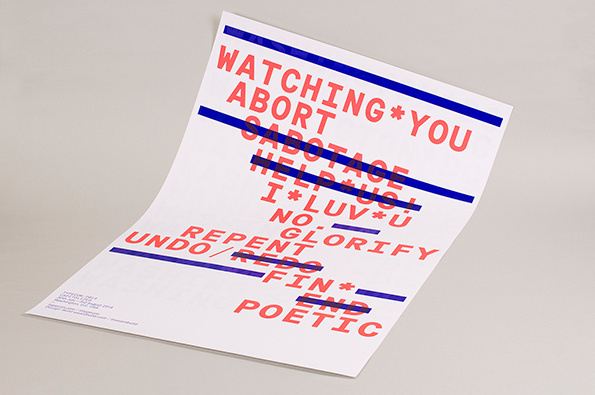 WATCHING*YOU
ABORT
SABOTAGE
HELP*US!
I*LUV*Ü
NO.
GLORIFY
REPENT
UNDO/REDO
FIN*
END
POETIC